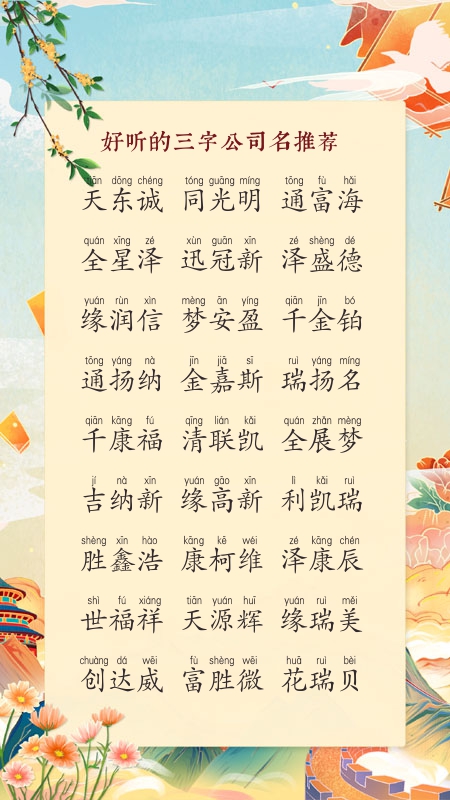 好听的三字公司名推荐
tiān dōng chéng tóng guāng míng tōng fù hǎi
天东诚 同光明 通富海
quán xīng zé xùn guān xīn zé shèng dé
全星泽 迅冠新 泽盛德
yuán rùn xìn mèng ān yíng qiān jīn bó
缘润信 梦安盈 千金铂
tōng yáng nà jīn jiā sī ruì yáng míng
通扬纳 金嘉斯 瑞扬名
qiān kāng fú qīng lián kǎi quán zhǎn mèng
千康福 清联凯 全展梦
jí nà xīn yuán gāo xīn lì kǎi ruì
吉纳新 缘高新 利凯瑞
shèng xīn hào kāng kē wéi zé kāng chén
胜鑫浩 康柯维 泽康辰
shì fú xiáng tiān yuán huī yuán ruì měi
世福祥 天源辉 缘瑞美
chuàng dá wēi fù shèng wēi huā ruì bèi
创达威 富胜微 花瑞贝